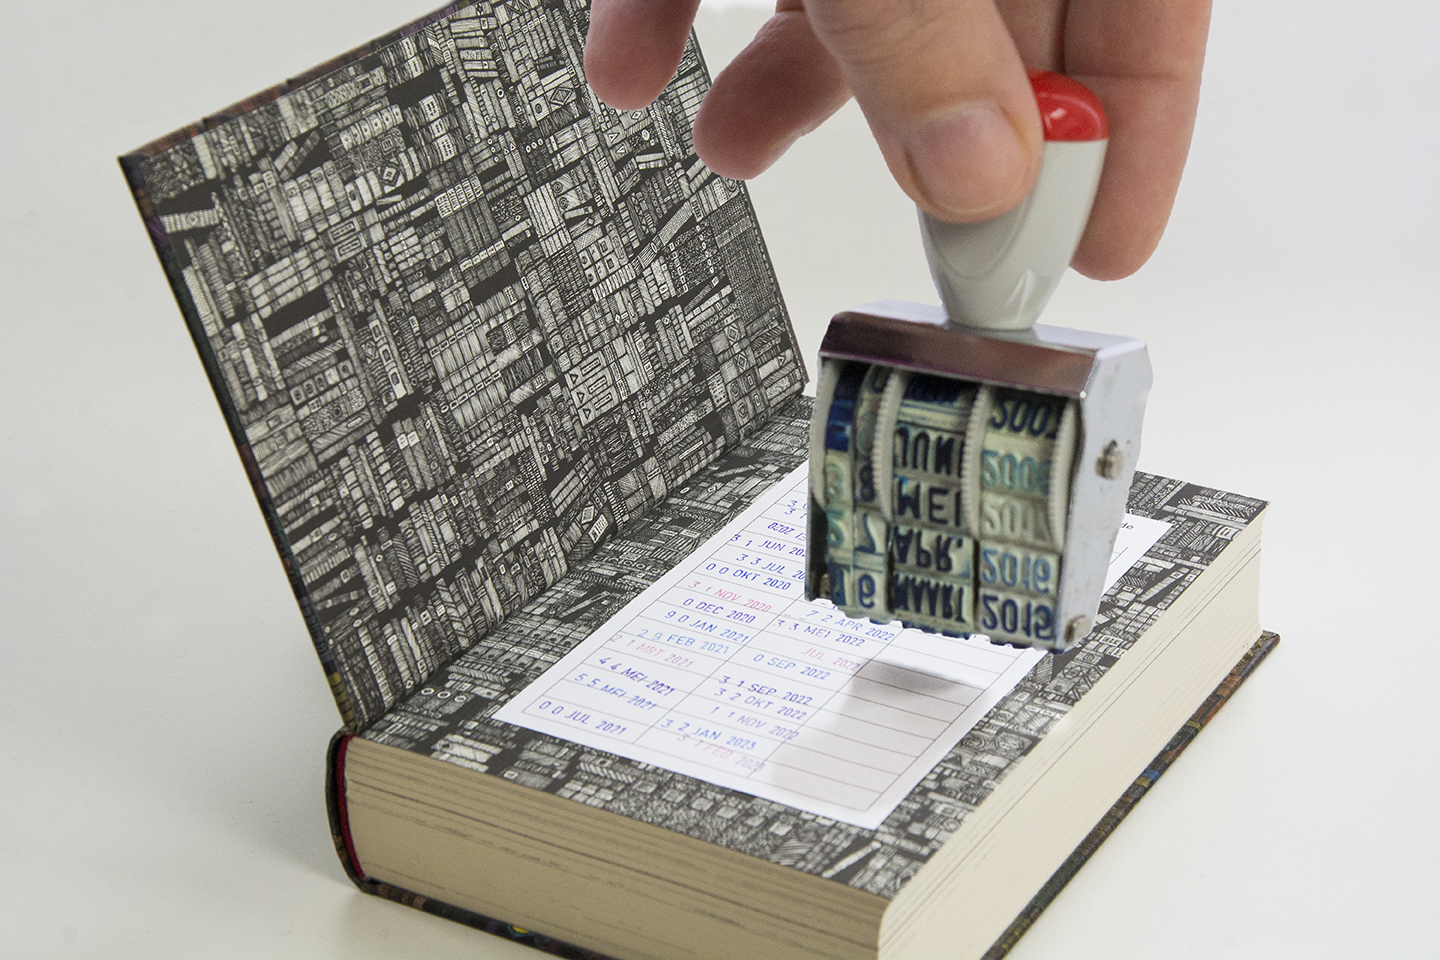 2001
JUNI
2006
MEI
APR.
2016
16
MAART
2015
de
3 1 JUN 202
3 3 JUL 20
0 0 OKT 2020
3 1 NOV 2020
0 DEC 2020
9 0 JAN 2021
2 9 FEB 2021
1 MRT 2021
4 4 MEI 2021
5 5 MEI 2021
0 0 JUL 2021
7 2 APR 2022
3 3 MEI 2022
JUL 2022
0 SEP 2022
3 1 SEP 2022
3 2 OKT 2022
1 1 NOV 2022
3 2 JAN 2023
3 1 FEB 202